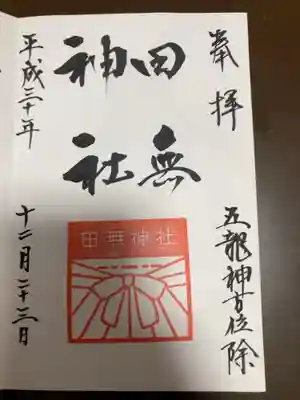 奉拝
五龍神方位除
田無
神社
田無神社
平成三十年
十二月二十三日